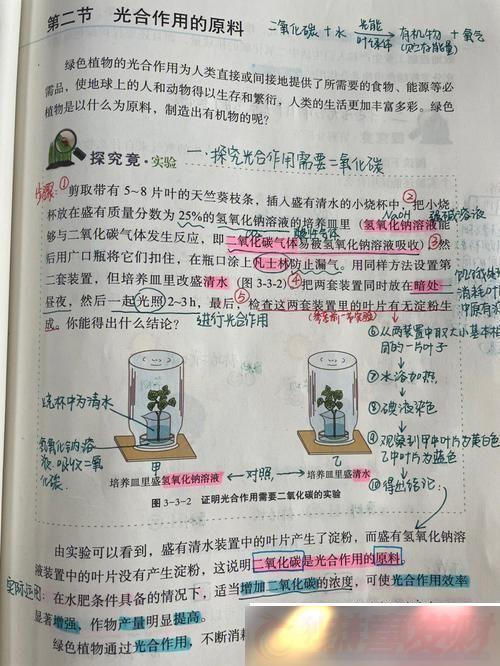 第二节 光合作用的原料
二氧化碳+水 光能 叶绿体 有机物+氧气
(贮存能量)
绿色植物的光合作用为人类直接或间接地提供了所需要的食物、能源等必
需品，使地球上的人和动物得以生存和繁衍，人类的生活更加丰富多彩。绿色
植物是以什么为原料，制造出有机物的呢？
探究竟·实验 一、探究光合作用需要二氧化碳
步骤：① 剪取带有 5~8 片叶的天竺葵枝条，插入盛有清水的小烧杯中，② 把小烧
NaOH 强碱溶液
杯放在盛有质量分数为 25%的氢氧化钠溶液的培养皿里（氢氧化钠溶液能
够与二氧化碳气体发生反应，即二氧化碳气体易被氢氧化钠溶液吸收）③然
后用广口瓶将它们扣住，在瓶口涂上凡士林防止漏气。用同样方法设置第
二套装置，但培养皿里改盛清水（图 3-3-2）④把两套装置同时放在暗处一
消耗叶
昼夜，然后一起光照 2~3 h，最后⑤检查这两套装置里的叶片有无淀粉生
成。你能得出什么结论？
进行光合作用
⑥从两装置中取大小基本相
同的一片叶子
⑦水浴加热
⑧碘液染色
⑨观察到甲中叶片为黄白色
乙中叶片为蓝色
⑩得出结论：
烧杯中为清水
氢氧化钠溶
液：吸收二氧
化碳
甲
乙
培养皿里盛氢氧化钠溶液 ←对照→ 培养皿里盛清水
图 3-3-2 证明光合作用需要二氧化碳的实验
由实验可以看到，盛有清水装置中的叶片产生了淀粉，而盛有氢氧化钠溶
液装置中的叶片没有产生淀粉，这说明二氧化碳是光合作用的原料。
实际运用：在水肥条件具备的情况下，适当增加二氧化碳的浓度，可使光合作用效率
显著增强，作物产量明显提高。
绿色植物通过光合作用，不断消耗